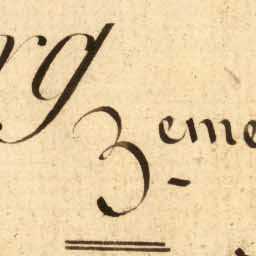 rg
3eme